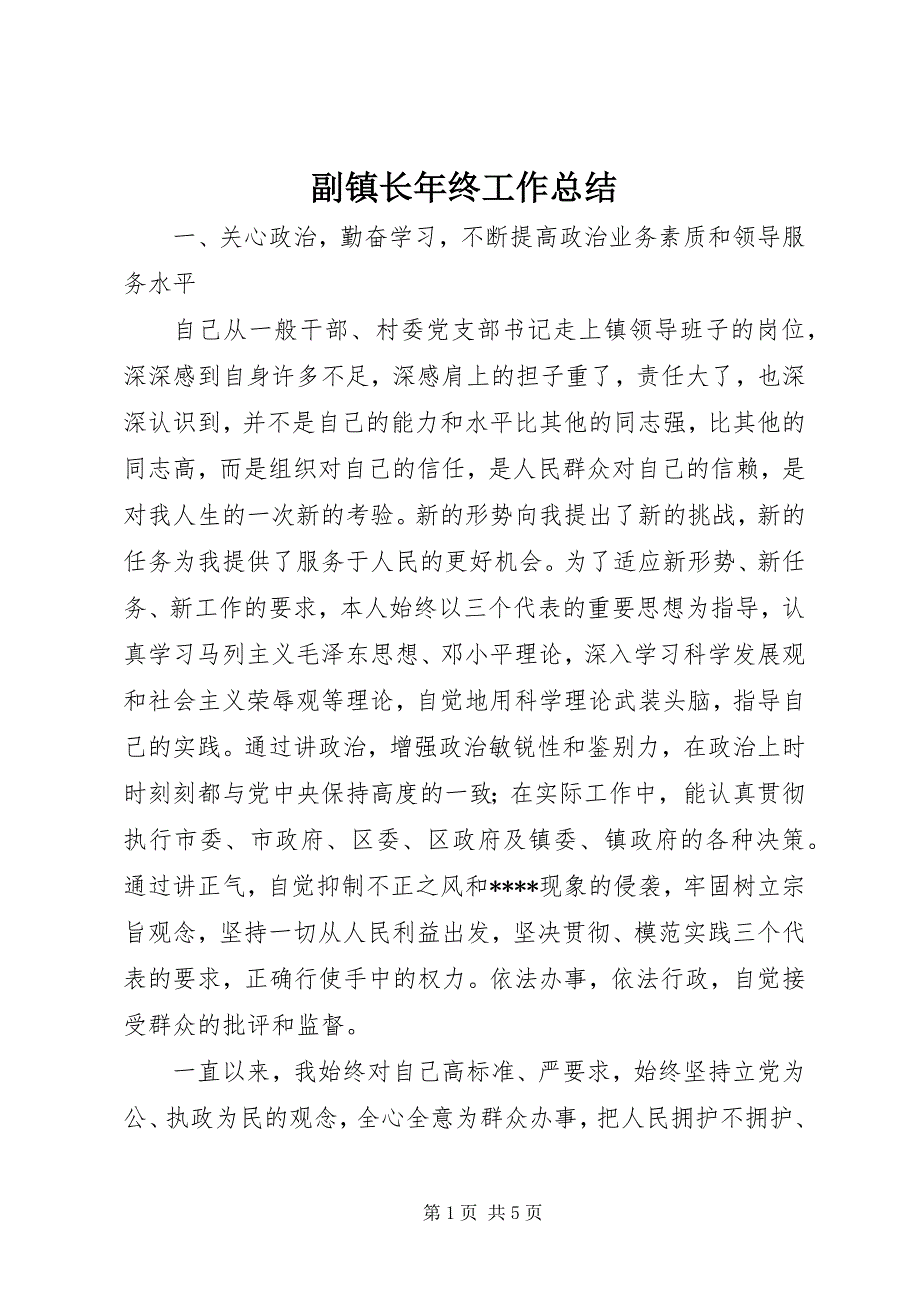 副镇长年终工作总结
一、关心政治，勤奋学习，不断提高政治业务素质和领导服
务水平
自己从一般干部、村委党支部书记走上镇领导班子的岗位，
深深感到自身许多不足，深感肩上的担子重了，责任大了，也深
深认识到，并不是自己的能力和水平比其他的同志强，比其他的
同志高，而是组织对自己的信任，是人民群众对自己的信赖，是
对我人生的一次新的考验。新的形势向我提出了新的挑战，新的
任务为我提供了服务于人民的更好机会。为了适应新形势、新任
务、新工作的要求，本人始终以三个代表的重要思想为指导，认
真学习马列主义毛泽东思想、邓小平理论，深入学习科学发展观
和社会主义荣辱观等理论，自觉地用科学理论武装头脑，指导自
己的实践。通过讲政治，增强政治敏锐性和鉴别力，在政治上时
时刻刻都与党中央保持高度的一致；在实际工作中，能认真贯彻
执行市委、市政府、区委、区政府及镇委、镇政府的各种决策。
通过讲正气，自觉抑制不正之风和****现象的侵袭，牢固树立宗
旨观念，坚持一切从人民利益出发，坚决贯彻、模范实践三个代
表的要求，正确行使手中的权力。依法办事，依法行政，自觉接
受群众的批评和监督。
一直以来，我始终对自己高标准、严要求，始终坚持立党为
公、执政为民的观念，全心全意为群众办事，把人民拥护不拥护、
第 1 页 共 5 页